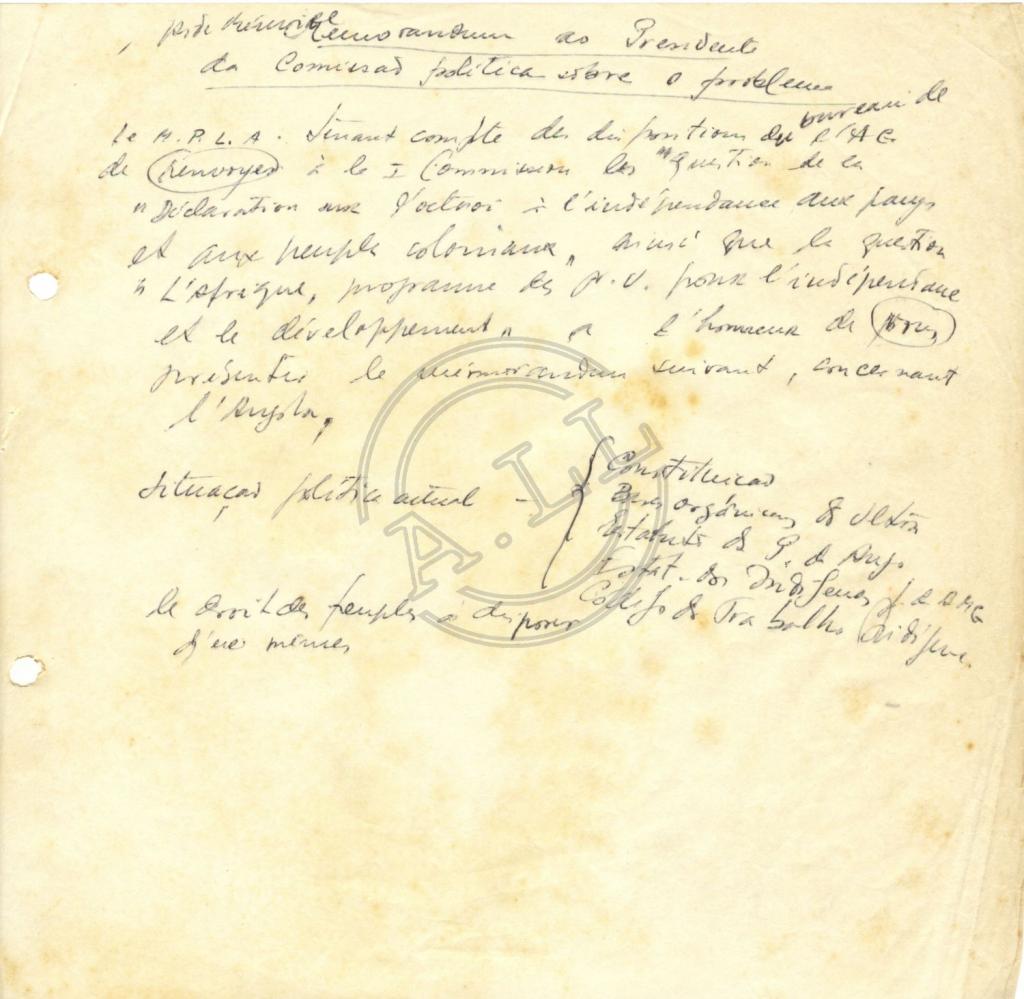 Memorandum ao Presidente
da Comissão política sôbre o problema
Le M.P.L.A. tenant compte des dispositions du bureau de l'AG
de renvoyer à la I Commission les "question de la
"Déclaration sur l'octroi à l'indépendance aux pays
et aux peuples coloniaux", ainsi que la question
"L'Afrique, programme des N.U. pour l'indépendance
et le développement" a l'honneur de vous
présenter le mémorandum suivant, concernant
l'Angola,
Situação política actual - { Constituição
Bases orgânicas do Ultra
Estatuto da P. de Ang.
Estat. dos Indígenas
Código do Trabalho indígena
A.L.
le droit des peuples à disposer
d'eux mêmes